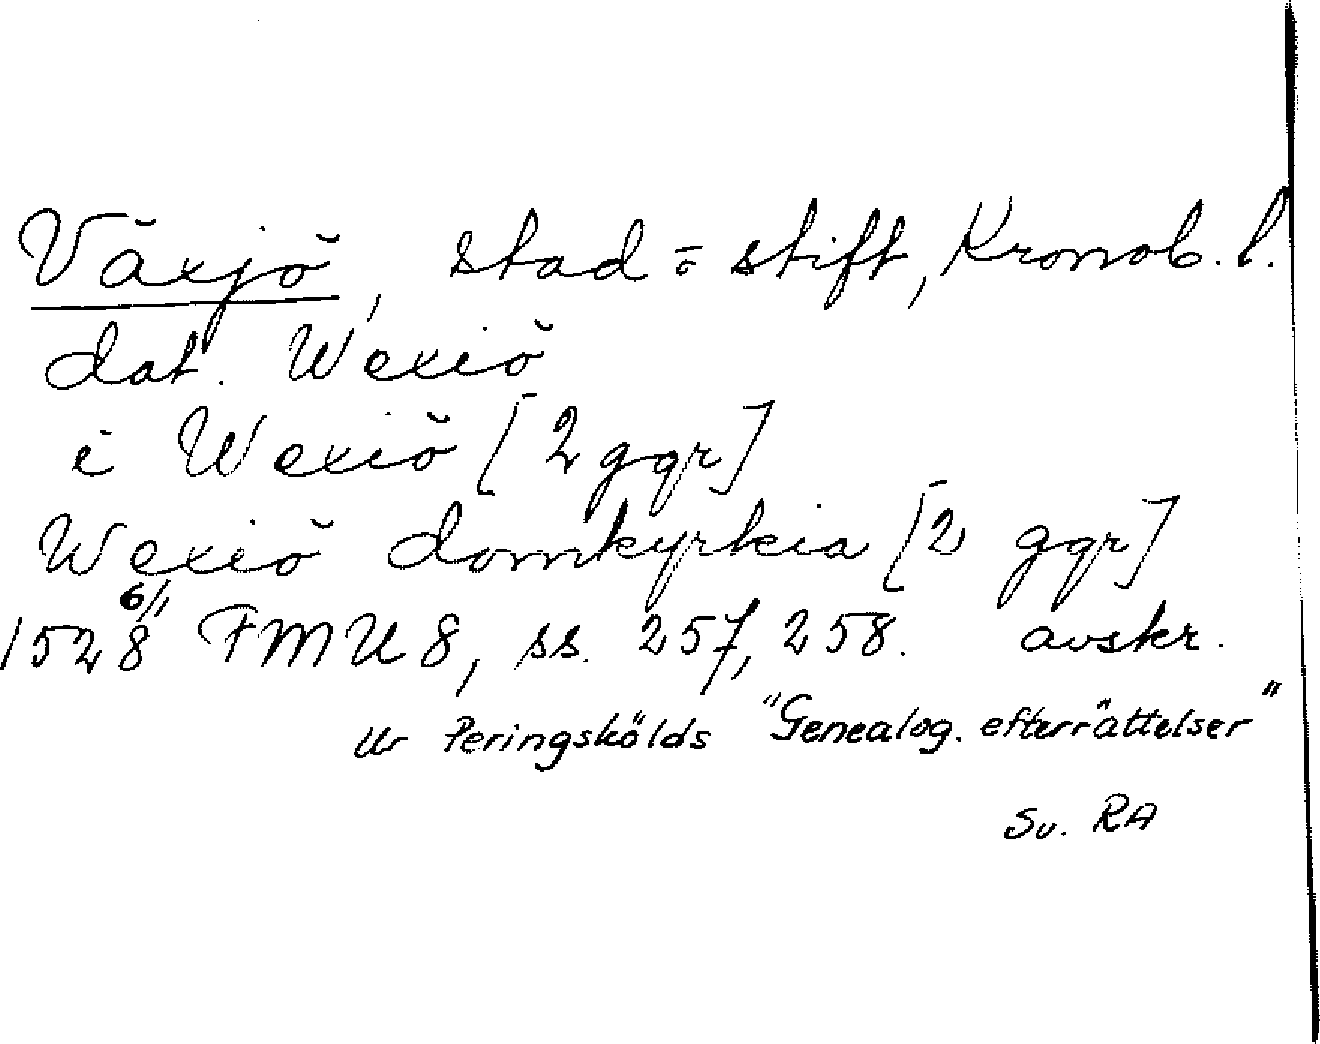 Växjö, stad o stift, Kronob. l.
dat. Wexiö
i Wexiö [2 ggr]
Wexiö domkyrkia [2 ggr]
1528 6/1 FMU 8, ss. 257, 258. avskr.
ur Peringskölds "Genealog. efterrättelser"
Sv. RA